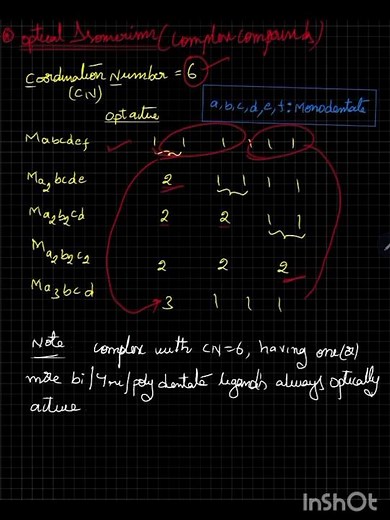 Optical Isomerism (Complex compounds)
Coordination Number = 6
(CN)
a,b,c,d,e,f : Monodentate
opt active
Mabcdef 1 1 1 1 1 1
Ma2bcde 2 1 1 1 1
Ma2b2cd 2 2 1 1
Ma2b2c2 2 2 2
Ma3bcd 3 1 1 1
Note complex with CN=6, having one(or)
more bi/Tri/poly dentate ligands always optically
active
InShOt